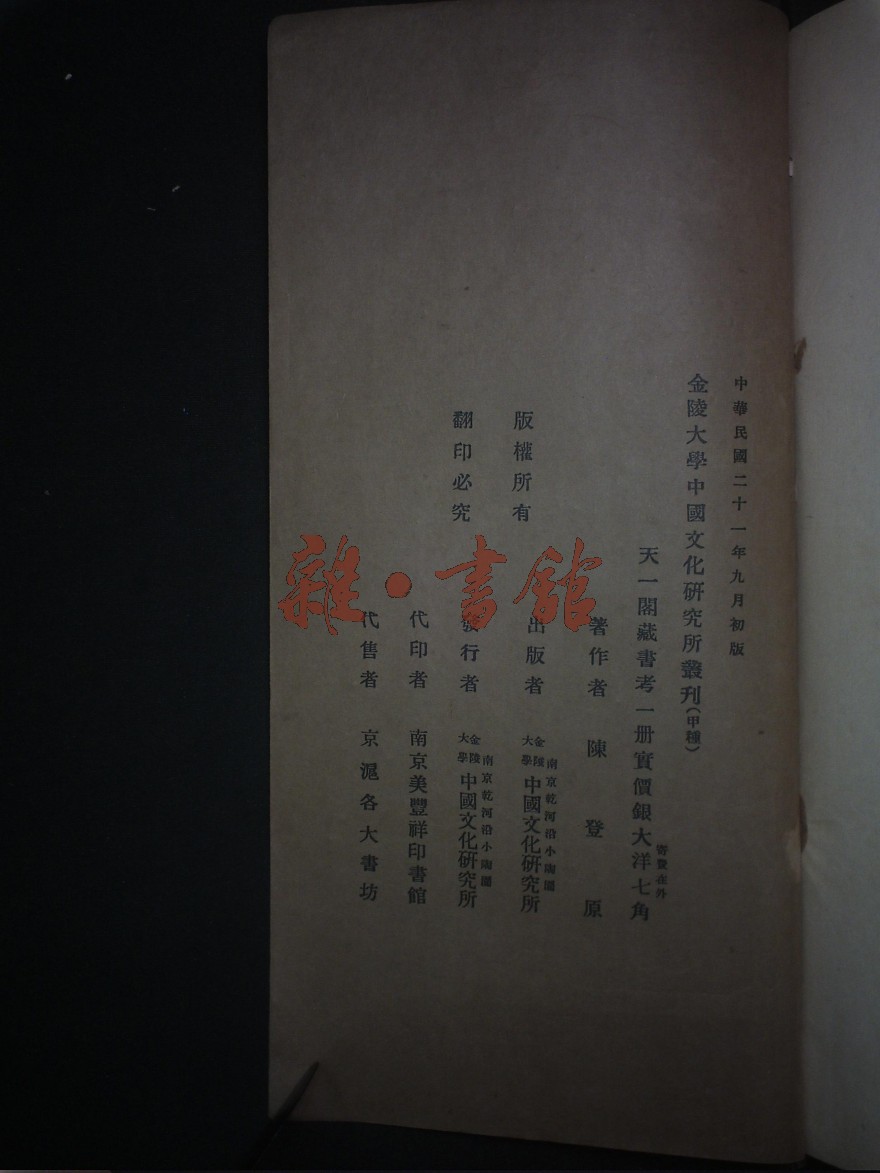 中華民國二十一年九月初版
金陵大學中國文化研究所叢刊(甲種)
天一閣藏書考一册實價銀大洋七角
寄費在外
著作者 陳登原
版權所有
出版者 金陵大學中國文化研究所
南京乾河沿小陶園
翻印必究
發行者 金陵大學中國文化研究所
南京乾河沿小陶園
代印者 南京美豐祥印書館
代售者 京滬各大書坊
雜·書館